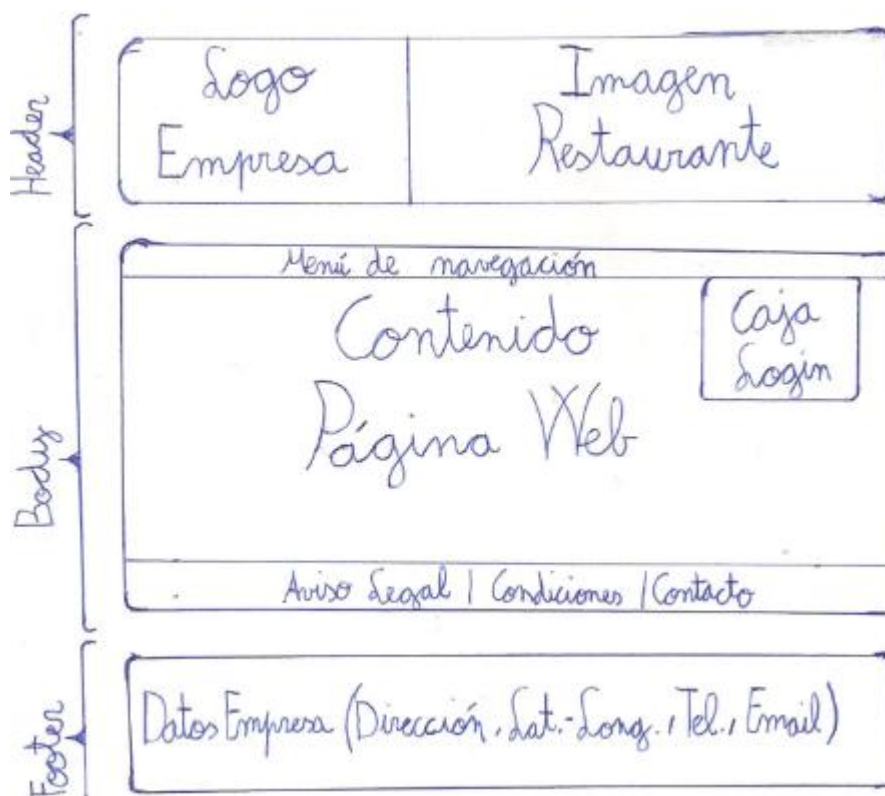 Header
Logo
Empresa
Imagen
Restaurante
Body
Menú de navegación
Contenido
Página Web
Caja
Login
Aviso Legal | Condiciones | Contacto
Footer
Datos Empresa (Dirección, Lat.-Long., Tel., Email)